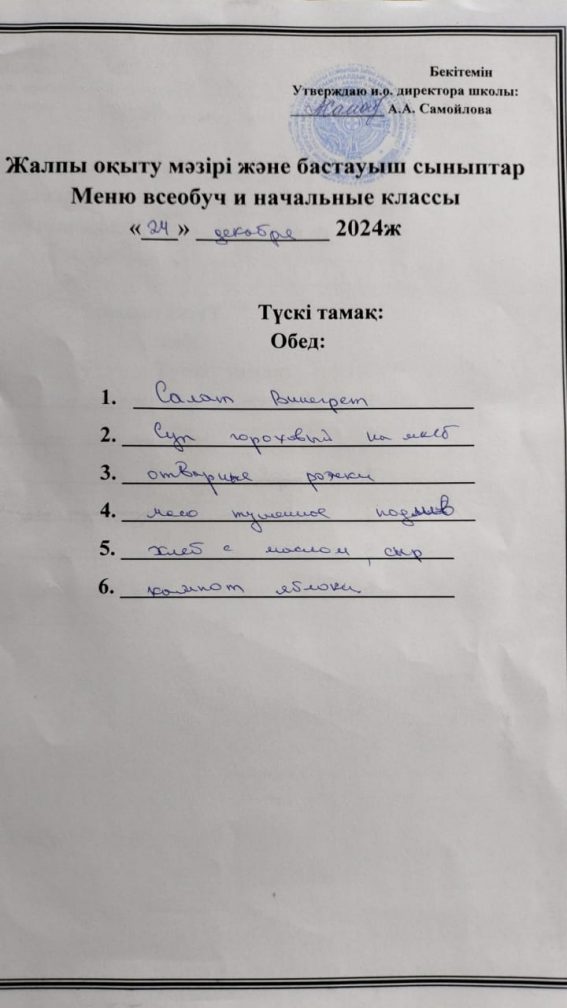 Бекітемін
Утверждаю и.о. директора школы:
А.А. Самойлова
Жалпы оқыту мәзірі және бастауыш сыныптар
Меню всеобуч и начальные классы
«24» декабря 2024ж
Түскі тамақ:
Обед:
1. Салат Винегрет
2. Суп гороховый на
3. отварные рожки
4. мясо тушенное
5. хлеб с маслом, сыр
6. компот яблоки